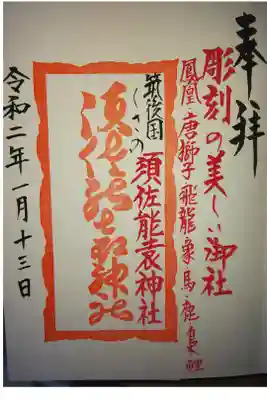 奉拝
彫刻の美しい御社
鳳凰・唐獅子飛龍象馬・鹿亀鯉
筑後国
くさの
須佐能袁神社
須佐能袁神社
令和二年一月十三日